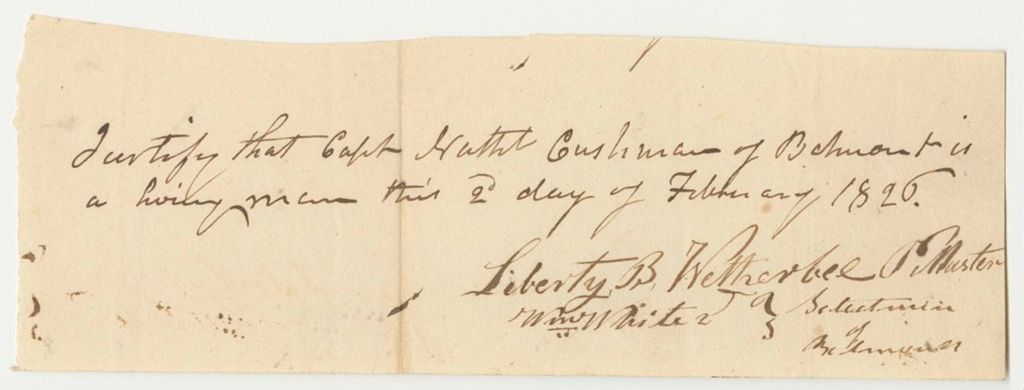 I certify that Capt Nathl Cushman of Belmont is
a living man this 2d day of February 1826.
Liberty B. Wetherbee P Master
Wm White 2d } Selectmen
of
Belmont